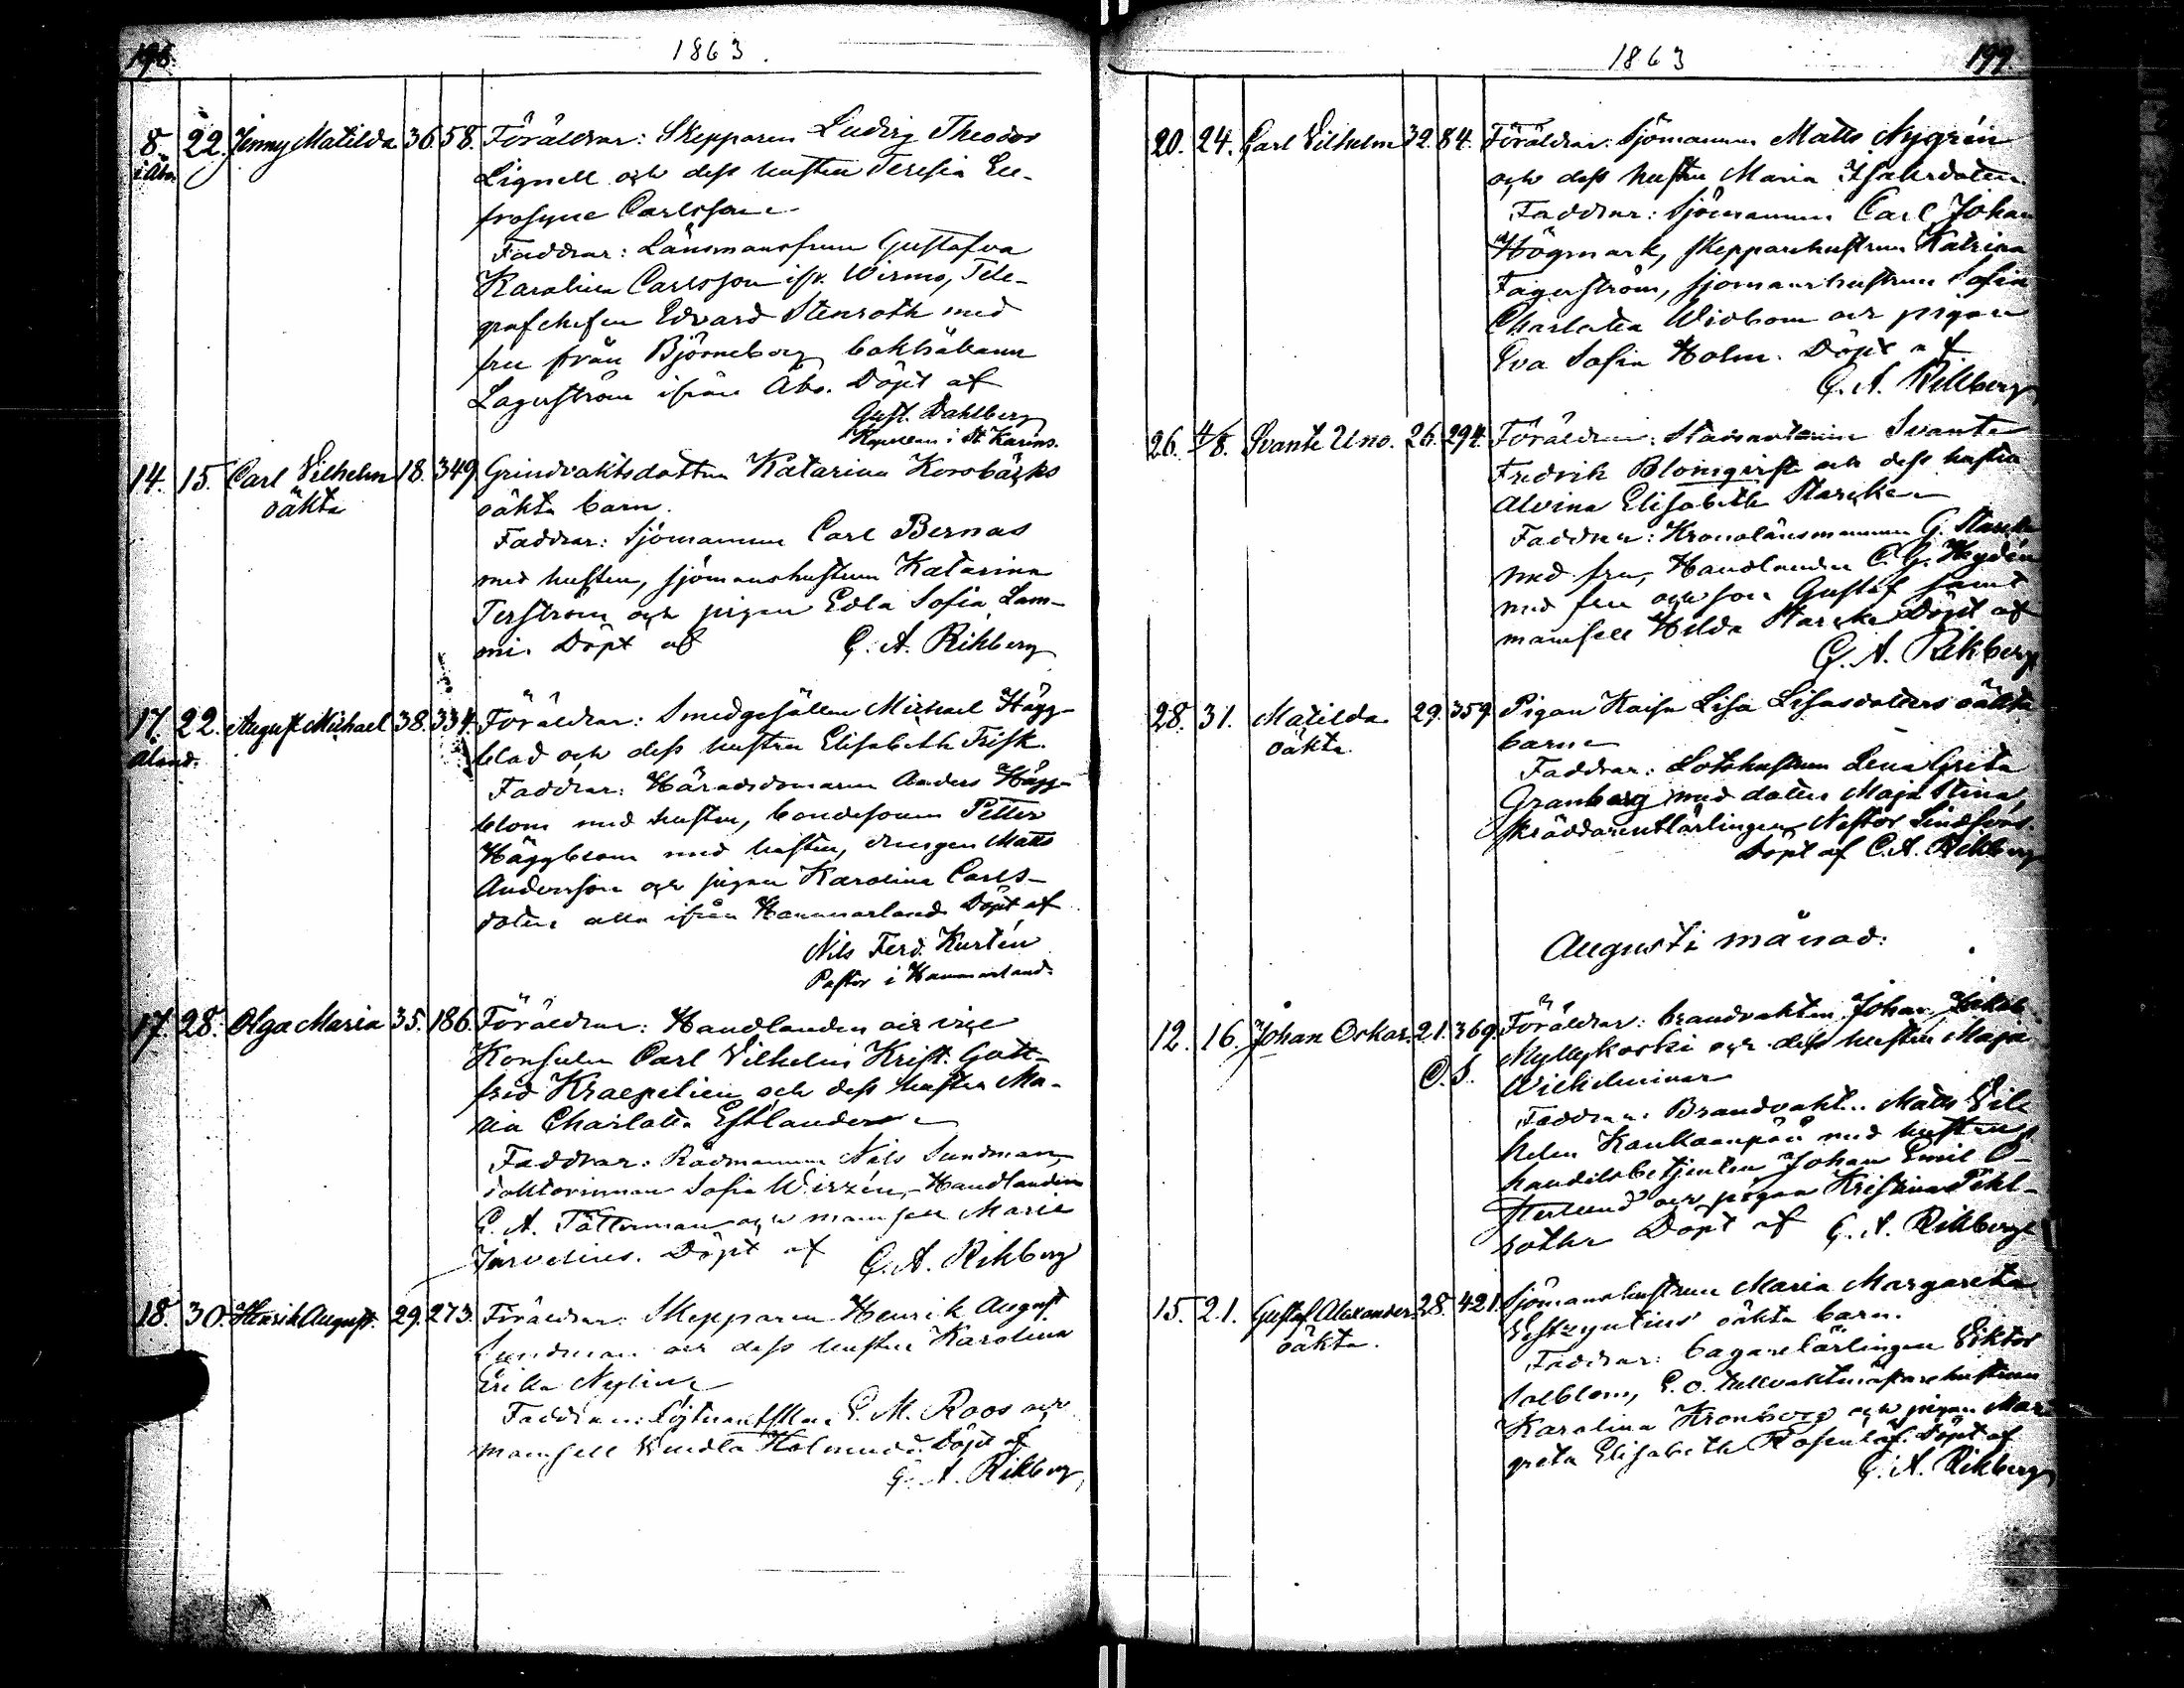 198.
1863.
8. 22. Jenny Matilda 36. 58. Föräldrar: Skepparen Ludvig Theodor
i Åbo.
Lignell och dess hustru Teresia Eu-
frosyne Carlsson
Faddrar: Länsmansfrun Gustafva
Karolina Carlsson ifr. Wirmo, Tele-
grafchefen Edvard Stenroth med
fru från Björneborg, bokhållaren
Lagerström ifrån Åbo. Döpt af
Gust. Dahlberg
Kapellan i St Karins.
14. 15. Carl Vilhelm 18. 349. Grindvaktsdottren Katarina Korsbäcks
oäkta
oäkta barn.
Faddrar: Sjömannen Carl Bernas
med hustru, sjömanshustrun Katarina
Terström och pigan Edla Sofia Lam-
mi. Döpt af C. A. Rikberg
17. 22. August Michael 38. 334. Föräldrar: Smedgesällen Michael Hägg-
Åland.
blad och dess hustru Elisabeth Frisk.
Faddrar: Häradsdomaren Anders Hägg-
blom med hustru, bondesonen Petter
Häggblom med hustru, drengen Matts
Andersson och pigan Karolina Carls-
doter alla ifrån Hammarland. Döpt af
Nils Ferd. Kurtén
Pastor i Hammarland.
17. 28. Olga Maria 35. 186. Föräldrar: Handlanden och vice
Konsuln Carl Vilhelm Krist. Gott-
frid Kraepelien och dess hustru Ma-
ria Charlotta Estlander
Faddrar: Rådmannen Nils Sundman,
doktorinnan Sofia Wirzén, Handlanden
C. A. Tötterman och mamsell Marie
Jarvelius. Döpt af C. A. Rikberg
18. 30. Henrik August. 29. 273. Föräldrar: Skepparen Henrik August
Sundman och dess hustru Karolina
Erika Nylin
Faddrar: E. M. Roos och
mamsell Vendla Holmudd. Döpt af
C. A. Rikberg
1863
199.
20. 24. Carl Vilhelm 32. 84. Föräldrar: Sjömannen Matts Nygrén
och dess hustru Maria Isaksdoter.
Faddrar: Sjömannen Carl Johan
Högmark, skepparehustrun Katrina
Fagerström, sjömanshustrun Sofia
Charlotta Widbom och pigan
Eva Sofia Holm. Döpt af
C. A. Rikberg
26. 4/8. Svante Uno. 26. 294. Föräldrar: Svante
Fredrik Blomqvist och dess hustru
Alvina Elisabeth Starcke
Faddrar: Kronolänsmannen G. Starcke
med fru, Handlanden C. G. Heydén
med fru och son Gustaf samt
mamsell Hilda Starcke Döpt af
C. A. Rikberg
28. 31. Matilda 29. 359. Pigan Kaisa Lisa Lisasdotters oäkta
oäkta.
barn
Faddrar: Lotshustrun Lena Greta
Granberg med doter Maja Stina,
skräddarenslärlingen Nestor Lindfors.
Döpt af C. A. Rikberg
Augusti månad.
12. 16. Johan Oskar. 21. 369. Föräldrar: brandvakten Johan
O. S.
Myllykoski och dess hustru Maja
Wilhelmina
Faddrar: Brandvakt. Matts Vil-
helm Kankaanpää med hustru,
handelsbetjenten Johan Emil Ö-
sterlund och pigan Kristina Pihl-
roth Döpt af C. A. Rikberg
15. 21. Gustaf Alexander. 28. 421. Sjömanshustrun Maria Margareta
oäkta.
oäkta barn.
Faddrar: bagarelärlingen Viktor
Salblom, E. o. tullvaktmästarehustrun
Karolina Kronberg och pigan Mar-
greta Elisabeth Rosenlöf. Döpt af
C. A. Rikberg